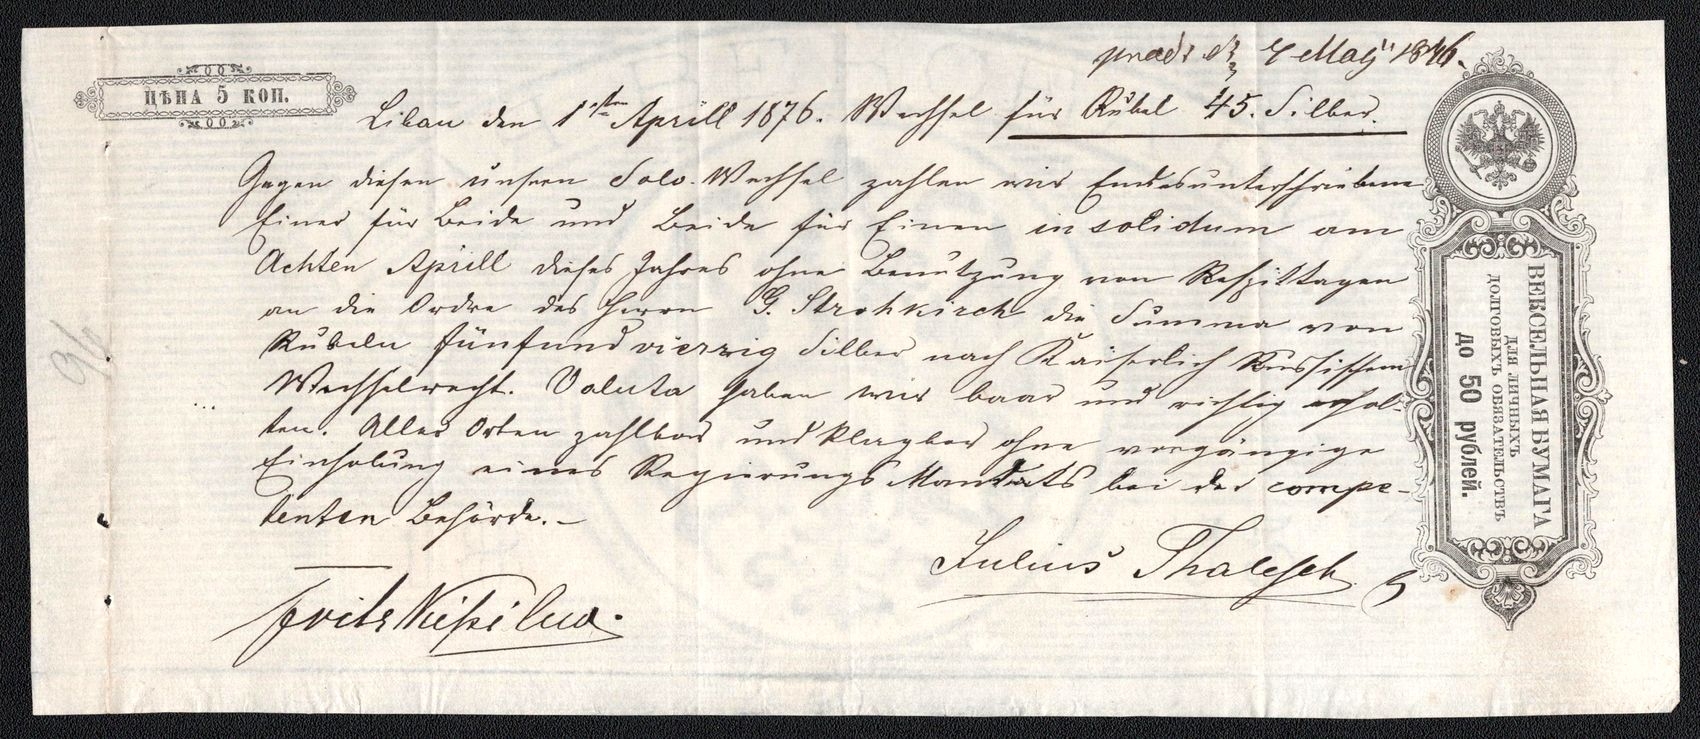 ЦѢНА 5 КОП.
d. 7 Maÿ 1876.
Libau den 1sten Aprill 1876. Wechsel für Rubel 45. Silber.
Gegen diesen unsern Solo-Wechsel zahlen wir Endesunterschriebene
Einer für Beide und Beide für Einen in solidum am
Achten Aprill dieses Jahres ohne Benutzung von Respittagen
an die Ordre des Herrn G. Strohkirch die Summa von
Rubeln fünfundvierzig Silber nach Kaiserlich Russischem
Wechselrecht. Valuta haben wir baar und richtig erhal-
ten. Aller Orten zahlbar und klagbar ohne vorgängige
Einholung eines Regierungs Mandats bei der compe-
tenten Behörde. –
Julius
Fritz
96
ВЕКСЕЛЬНАЯ БУМАГА
ДЛЯ ЛИЧНЫХЪ
ДОЛГОВЫХЪ ОБЯЗАТЕЛЬСТВЪ
до 50 рублей.